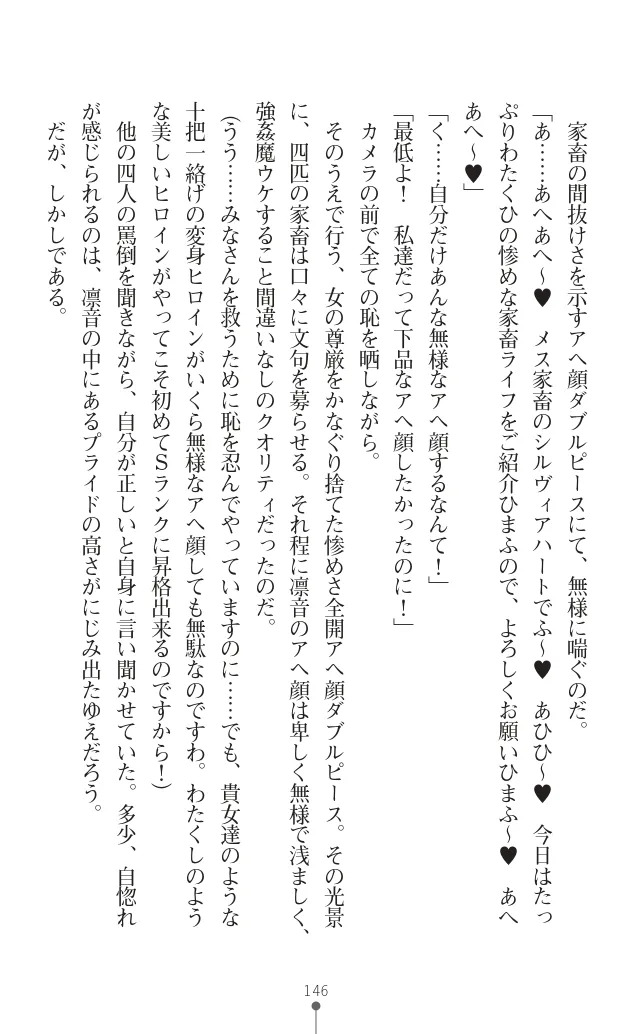 家畜の間抜けさを示すアヘ顔ダブルピースにて、無様に喘ぐのだ。
「あ……あへあへ～♥　メス家畜のシルヴィアハートでふ～♥　あひひ～♥　今日はたっ
ぷりわたくひの惨めな家畜ライフをご紹介ひまふので、よろしくお願いひまふ～♥　あへ
あへ～♥」
「く……自分だけあんな無様なアヘ顔するなんて！」
「最低よ！　私達だって下品なアヘ顔したかったのに！」
カメラの前で全ての恥を晒しながら。
そのうえで行う、女の尊厳をかなぐり捨てた惨めさ全開アヘ顔ダブルピース。その光景
に、四匹の家畜は口々に文句を募らせる。それ程に凛音のアヘ顔は卑しく無様で浅ましく、
強姦魔ウケすること間違いなしのクオリティだったのだ。
（うう……みなさんを救うために恥を忍んでやっていますのに……でも、貴女達のような
十把一絡げの変身ヒロインがいくら無様なアヘ顔しても無駄なのですわ。わたくしのよう
な美しいヒロインがやってこそ初めてＳランクに昇格出来るのですから！）
他の四人の罵倒を聞きながら、自分が正しいと自身に言い聞かせていた。多少、自惚れ
が感じられるのは、凛音の中にあるプライドの高さがにじみ出たゆえだろう。
だが、しかしである。
146